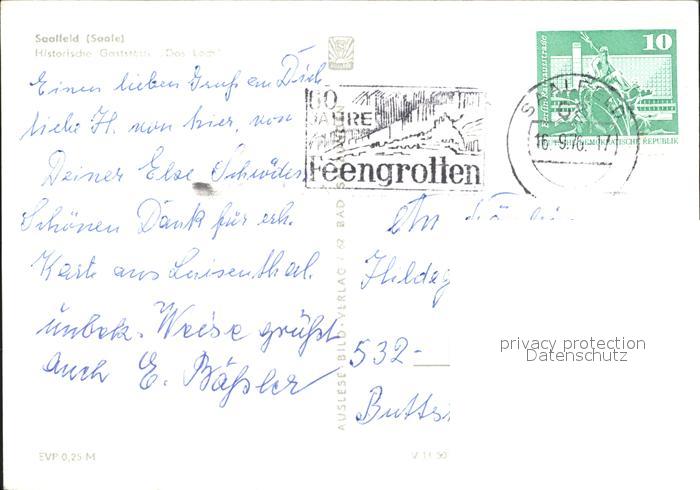 Saalfeld (Saale)
Historische Gaststätte "Das Loch"
Einen lieben Gruß an Dich
liebe H. von hier, von
Deiner Else
Schönen Dank für erh.
Karte aus Luisenthal.
unbek. Weise grüßt
auch E. Bäßler
EVP 0,25 M
AUSLESE-BILD-VERLAG / 62 BAD SALZUNGEN
V 11 50
60
JAHRE
Feengrotten
SAALFELD
16.9.76
10
DEMOKRATISCHE REPUBLIK
An
Hildeg
532-
Butts
privacy protection
Datenschutz